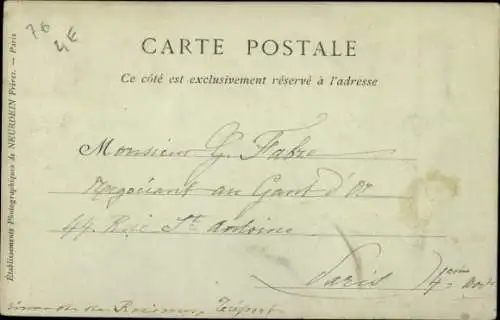 76
4E
CARTE POSTALE
Ce côté est exclusivement réservé à l'adresse
Monsieur G. Fabre
Négociant au Gant d'Or
44 Rue St Antoine
Paris
Établissements Photographiques de NEURDEIN Frères. — Paris